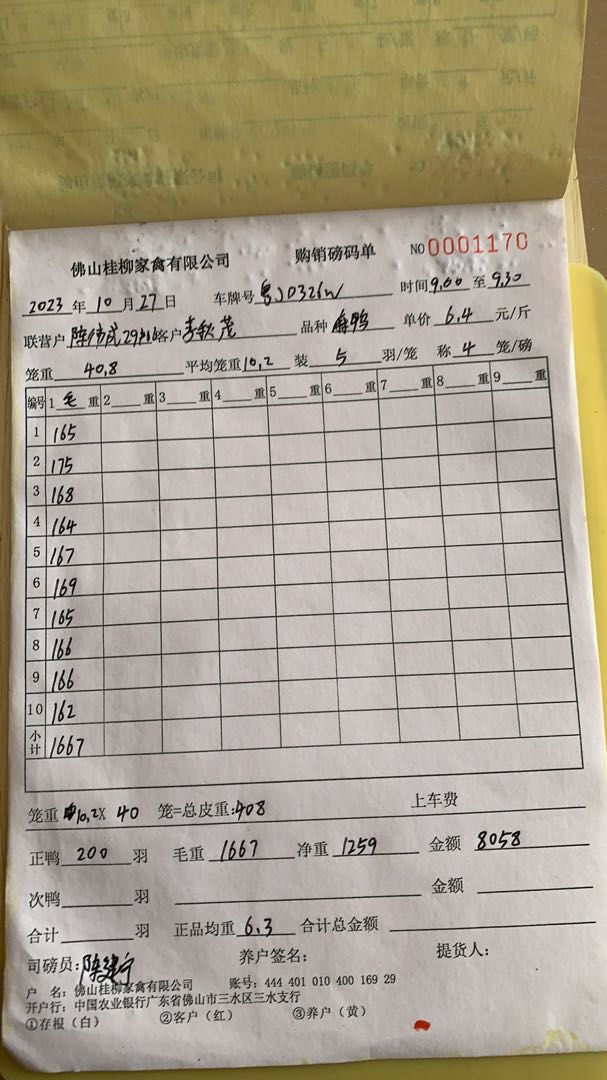 佛山桂柳家禽有限公司 购销磅码单 NO 0001170
2023 年 10 月 27 日 车牌号 粤J0326W 时间 9.00 至 9.30
联营户 陈伟 客户 李秋茂 品种 麻鸭 单价 6.4 元/斤
笼重 40.8 平均笼重 10.2 装 5 羽/笼 称 4 笼/磅
编号 1 毛 重 2 重 3 重 4 重 5 重 6 重 7 重 8 重 9 重
1 165
2 175
3 168
4 164
5 167
6 169
7 165
8 166
9 166
10 162
小计 1667
笼重 10.2X 40 笼=总皮重: 408 上车费
正鸭 200 羽 毛重 1667 净重 1259 金额 8058
次鸭 羽 金额
合计 羽 正品均重 6.3 合计总金额
司磅员: 养户签名: 提货人:
户 名: 佛山桂柳家禽有限公司 账号: 444 401 010 400 169 29
开户行: 中国农业银行广东省佛山市三水区三水支行
①存根（白） ②客户（红） ③养户（黄）